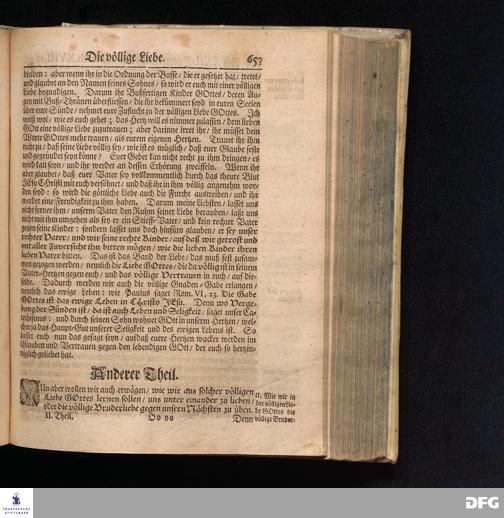 Die völlige Liebe. 653
bleiben: aber wenn ihr in die Ordnung der Busse, die er gesetzet hat, tretet,
und glaubet an den Namen seines Sohnes, so wird er euch mit einer völligen
Liebe begnadigen. Darum ihr Bußfertigen Kinder GOttes, deren Au-
gen mit Buß-Thränen überfliessen, die ihr bekümmert seyd in euren Seelen
über eure Sünde, nehmet eure Zuflucht zu der völligen Liebe GOttes. Ich
weiß wol, wie es euch gehet; das Hertz will es nimmer zulassen, dem lieben
GOtt eine völlige Liebe zuzutrauen; aber darinne irret ihr, ihr müsset dem
Worte GOttes mehr trauen, als eurem eigenem Hertzen. Trauet ihr ihm
nicht zu, daß seine Liebe völlig sey, wie ist es müglich, daß euer Glaube feste
und gegründet seyn könne? Euer Gebet kan nicht recht zu ihm dringen, es
wird kalt seyn, und ihr werdet an dessen Erhörung zweiffeln. Wenn ihr
aber glaubet, daß euer Vater sey vollkommentlich durch das theure Blut
JEsu Christi mit euch versöhnet, und daß ihr in ihm völlig angenehm wor-
den seyd: so wird die göttliche Liebe auch die Furcht austreiben, und ihr
werdet eine Freudigkeit zu ihm haben. Darum meine Liebsten, lasset uns
nicht ferner ihm, unserm Vater den Ruhm seiner Liebe berauben, laßt uns
nicht mit ihm umgehen als sey er ein Stieff-Vater, und kein rechter Vater
gegen seine Kinder: sondern lasset uns doch hinfüro glauben, er sey unser
rechter Vater, und wir seine rechte Kinder, auf daß wir getrost und
mit aller Zuversicht ihn bitten mögen, wie die lieben Kinder ihren
lieben Vater bitten. Das ist das Band der Liebe, das muß fest zusam-
men gezogen werden, nemlich die Liebe GOttes, die da völlig ist in seinem
Vater-Hertzen gegen euch, und das völlige Vertrauen in euch, auf die-
selbe. Dadurch werden wir auch die völlige Gnaden-Gabe erlangen,
nemlich das ewige Leben, wie Paulus saget Röm. VI, 23. Die Gabe
GOttes ist das ewige Leben in CHristo JEsu. Denn wo Verge-
bung der Sünden ist, da ist auch Leben und Seligkeit, saget unser Ca-
techismus: und durch seinen Sohn wohnet GOtt in unserm Hertzen, wel-
cher ja das Haupt-Gut unserer Seligkeit und des ewigen Lebens ist. So
lasset euch nun das gesagt seyn, auf daß eure Hertzen wacker werden im
Glauben und Vertrauen gegen den lebendigen GOtt, der euch so hertzin-
niglich geliebet hat.
Anderer Theil.
NUn aber wollen wir auch erwägen, wie wir aus solcher völligen
Liebe GOttes lernen sollen, uns unter einander zu lieben,
oder die völlige Bruderliebe gegen unsern Nächsten zu üben.
II. Wie wir in
der völligen Lie-
be GOttes die
völlige Bruder-
II. Theil, Oo oo Denn
FRANCKESCHE
STIFTUNGEN
DFG